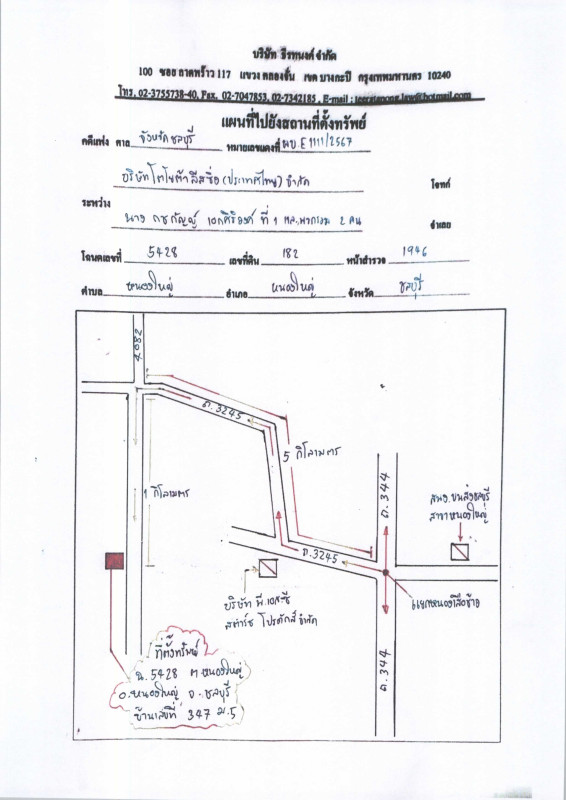 บริษัท ธีรทนงค์ จำกัด
100 ซอย ลาดพร้าว 117 แขวง คลองจั่น เขต บางกะปิ กรุงเทพมหานคร 10240
โทร. 02-3755738-40, Fax. 02-7047853, 02-7342185 , E-mail : teeratanong.law@hotmail.com
แผนที่ไปยังสถานที่ตั้งทรัพย์
คดีแพ่ง ศาล จังหวัดชลบุรี หมายเลขแดงที่ ผบ.E 1111/2567
บริษัทโตโยต้า ลีสซิ่ง (ประเทศไทย) จำกัด โจทก์
ระหว่าง
นาง กชกัญญ์ เอกศิริองค์ ที่ 1 กับพวกรวม 2 คน จำเลย
โฉนดเลขที่ 5428 เลขที่ดิน 182 หน้าสำรวจ 1946
ตำบล หนองใหญ่ อำเภอ หนองใหญ่ จังหวัด ชลบุรี
4082
ถ.3245
5 กิโลเมตร
1 กิโลเมตร
ถ.344
สนง.ขนส่งชลบุรี
สาขาหนองใหญ่
ถ.3245
บริษัท พี.เอส.ซี
สตาร์ช โปรดักส์ จำกัด
แยกหนองเสือช้าง
ถ.344
ที่ตั้งทรัพย์
ฉ.5428 ต.หนองใหญ่
อ.หนองใหญ่ จ.ชลบุรี
บ้านเลขที่ 347 ม.5